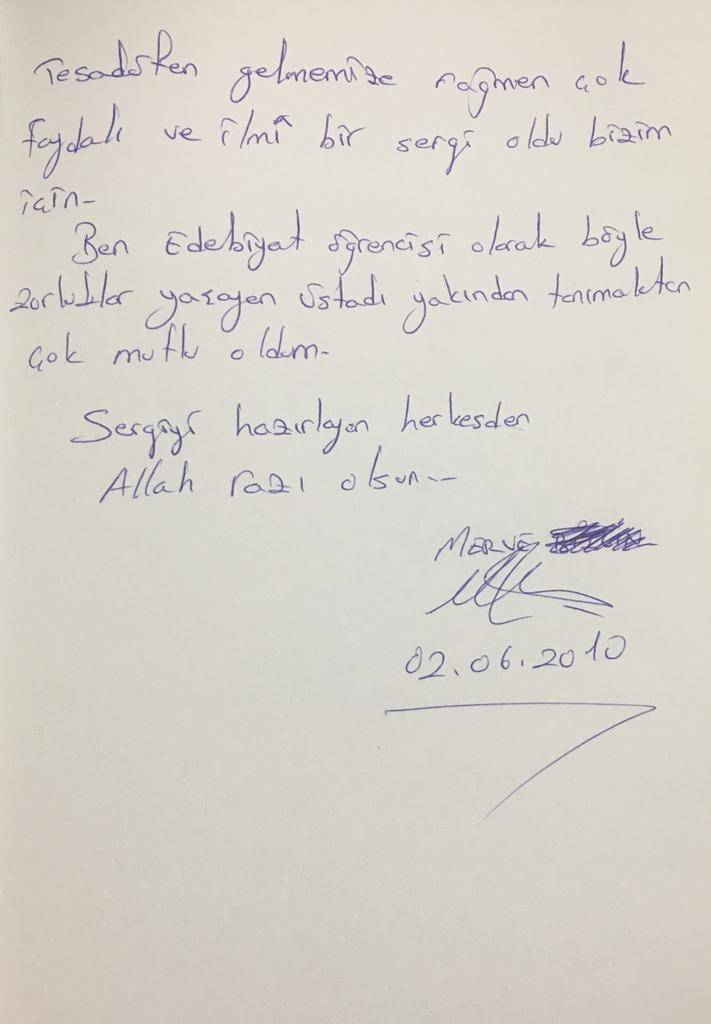 Tesadüfen gelmemize rağmen çok
faydalı ve ilmî bir sergi oldu bizim
için-
Ben Edebiyat öğrencisi olarak böyle
zorluklar yaşayan üstadı yakından tanımaktan
çok mutlu oldum-
Sergiyi hazırlayan herkesden
Allah razı olsun...
MERVE
02.06.2010